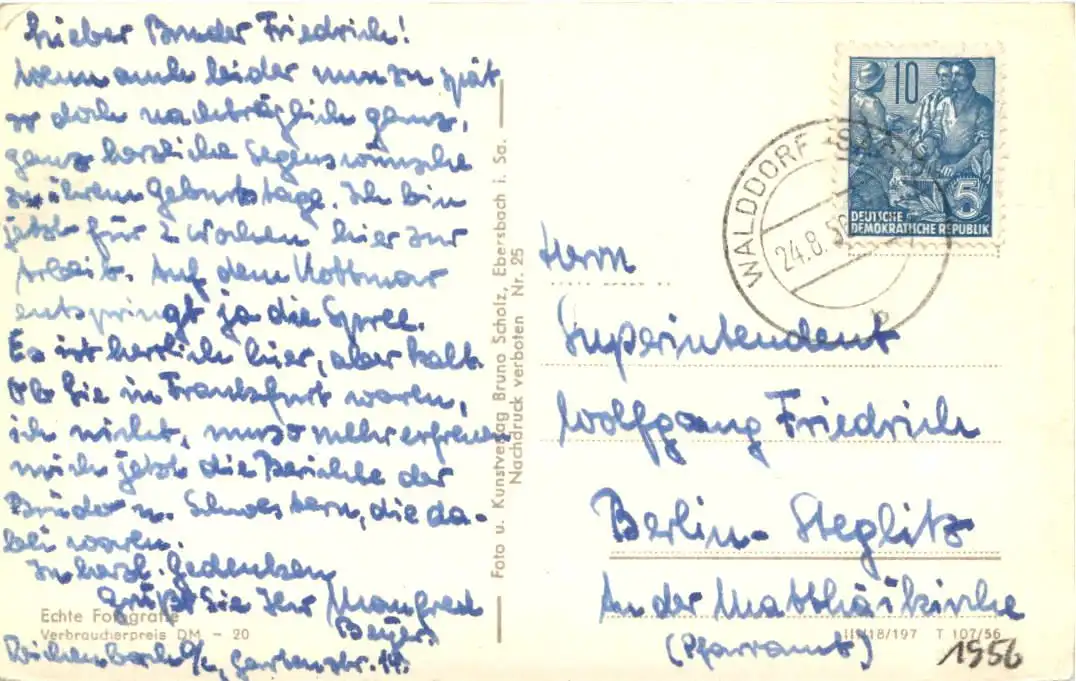 Lieber Bruder Friedrich!
Wenn auch leider nun zu spät
so doch nachträglich ganz,
ganz herzliche Segenswünsche
zu ihrem Geburtstage. Ich bin
jetzt für 2 Wochen hier zur
Arbeit. Auf dem Kottmar
entspringt ja die Spree.
Es ist herrlich hier, aber kalt.
Ob Sie in Frankfurt waren,
ich nicht, umso mehr erfreuen
mich jetzt die Berichte der
Brüder u. Schwestern, die da-
bei waren.
In herzl. Gedenken
grüßt Sie Ihr Manfred
Beyer.
Reichenbach/, Gartenstr. 14.
Echte Fotografie
Verbraucherpreis DM - 20
Foto u. Kunstverlag Bruno Scholz, Ebersbach i. Sa.
Nachdruck verboten Nr. 25
10
5
DEUTSCHE
DEMOKRATISCHE REPUBLIK
WALDDORF
24.8.56
b
Herrn
Superintendent
Wolfgang Friedrich
Berlin-Steglitz
An der Matthäikirche
(Pfarramt)
III/18/197 T 107/56
1956